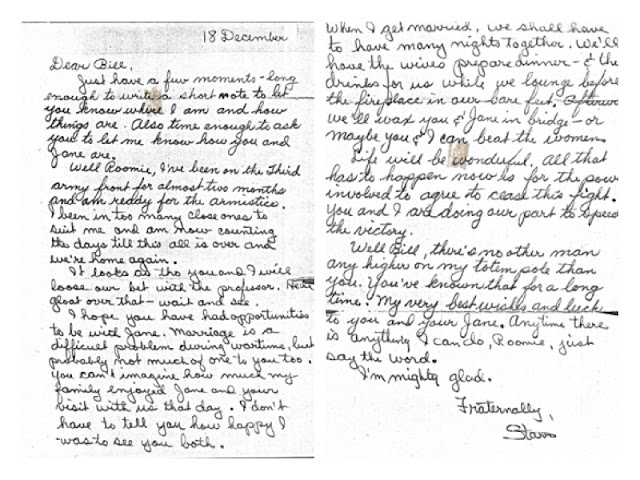 18 December
Dear Bill,
Just have a few moments - long
enough to write a short note to let
you know where I am and how
things are. Also time enough to ask
you to let me know how you and
Jane are.
Well Roomie, I've been on the Third
army front for almost two months
and am ready for the armistice.
I been in too many close ones to
suit me and am now counting
the days till this all is over and
we're home again.
It looks as tho you and I will
loose our bet with the professor. He'll
gloat over that - wait and see.
I hope you have had opportunities
to be with Jane. Marriage is a
difficult problem during wartime, but
probably not much of one to you too.
You can't imagine how much my
family enjoyed Jane and your
visit with us that day. I don't
have to tell you how happy I
was to see you both.
When I get married, we shall have
to have many nights together. We'll
have the wives prepare dinner - & the
drinks for us while we lounge before
the fireplace in our bare feet.
we'll wax you & Jane in bridge - or
maybe you & I can beat the women.
Life will be wonderful, all that
has to happen now is for the pow
involved to agree to cease this fight.
You and I are doing our part to speed
the victory.
Well Bill, there's no other man
any higher on my totem pole than
you. You've known that for a long
time. My very best wishes and luck
to you and your Jane. Anytime there
is anything I can do, Roomie, just
say the word.
I'm mighty glad.
Fraternally,